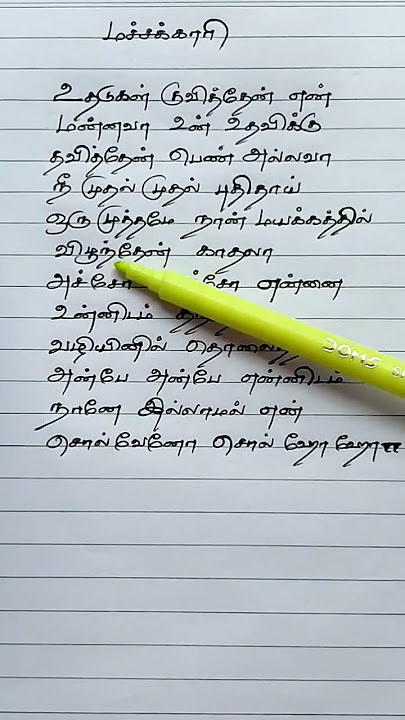 மச்சக்காரி
உதடுகள் குவித்தேன் என்
மன்னவா உன் உதவிக்கு
தவித்தேன் பெண் அல்லவா
நீ முதல் முதல் புதிதாய்
ஒரு முத்தமே நான் மயக்கத்தில்
விழுந்தேன் காதலா
அச்சோ என்னை
உன்னிடம்
வழியினில்
அன்பே அன்பே என்னிடம்
நானே இல்லாமல் என்
சொல்வேனோ சொல் ஹோ ஹோ
DOMS